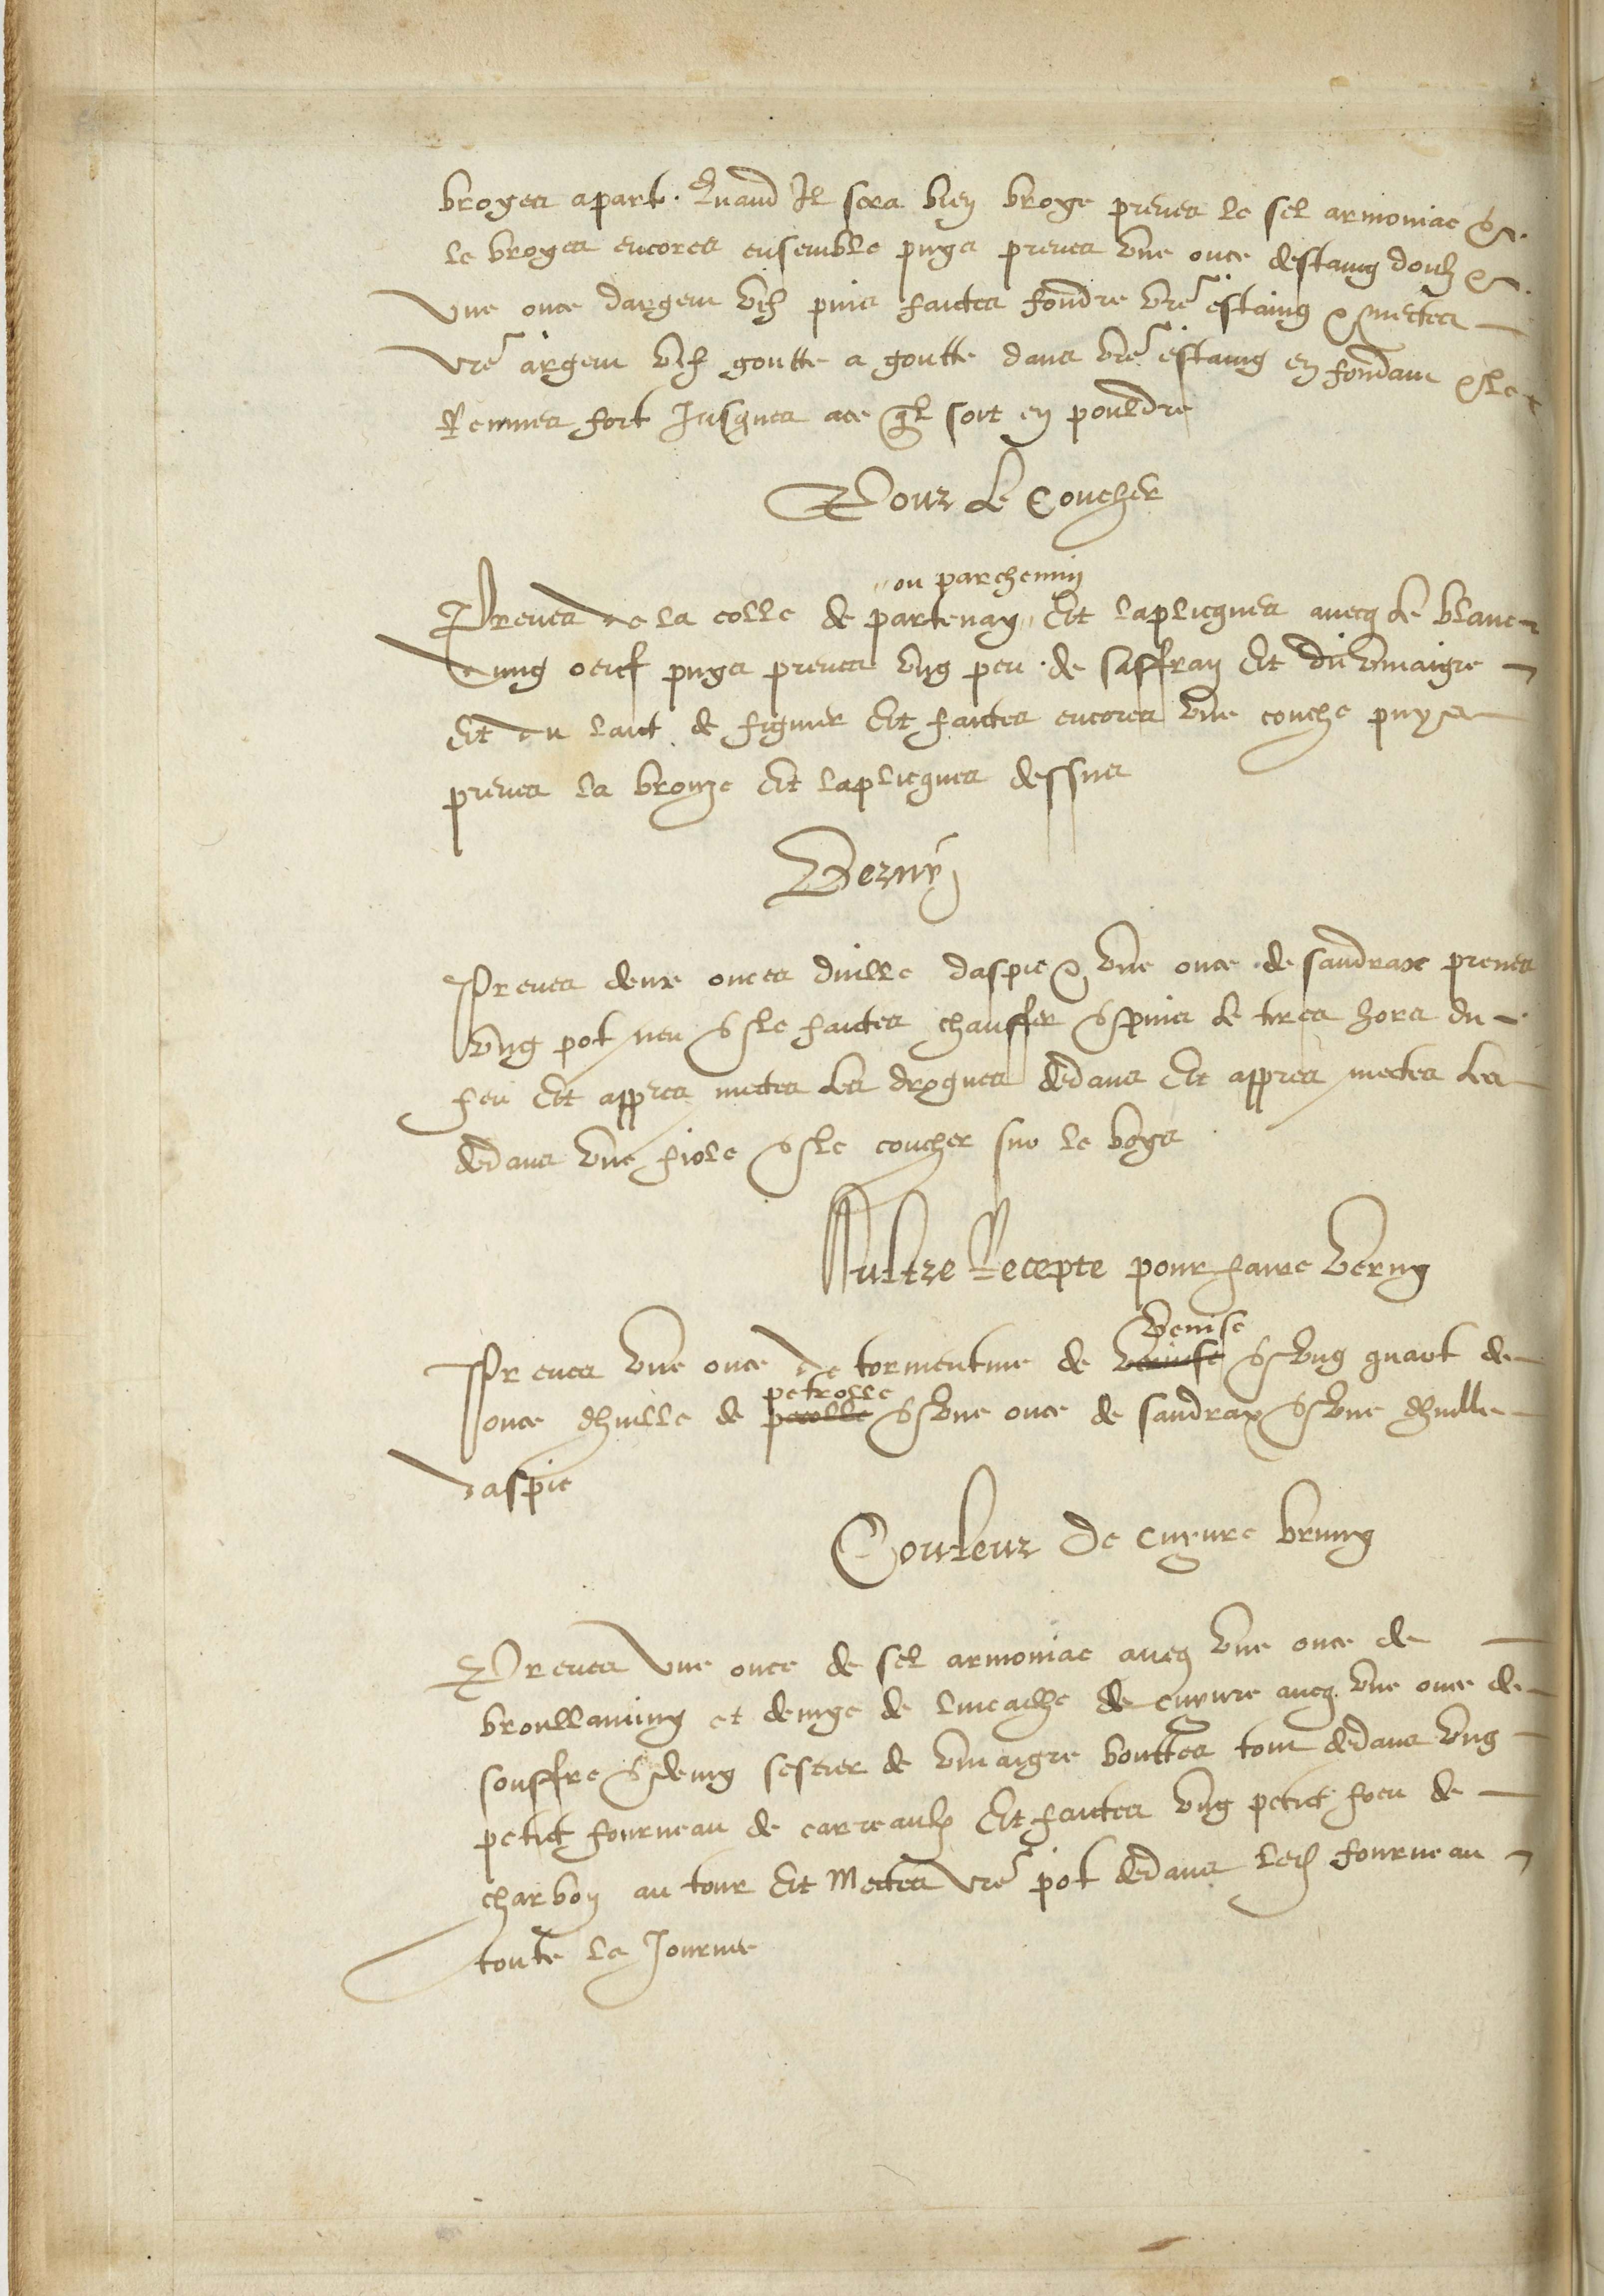 broyes apart. Quand Il sera bien broye prenes le sel armoniac &
le broyes encores ensemble puys prenes une once destaing doulx &
une once dargent vif puis faictes fondre vre estaing & mectes
vre argent vif goutte a goutte dans vre estaing en fondant & le
Remues fort Jusques ace ql soit en pouldre
Pour Le Coucher
ou parchemin
Prenes de la colle de partenay Et laplicques avecq le blanc
dung oeuf puys prenes ung peu de saffran Et du vinaigre
Et du laict de figuier Et faictes encores une couche puys
prenes la bronze Et laplicques dessus
Verny
Prenes deux onces duille daspic & une once de sandrax prenes
ung pot neu & le faictes chauffer & puis le tires hors du
feu Et appres mectes les drogues dedans Et appres mectes les
dedans une fiole & le coucher sur le boys
Aultre Recepte pour faire verny
Venise
Prenes une once de tormentine de & ung quart de
petrolle
once dhuille de & une once de sandrax & une dhuille
daspic
Couleur de cuyvre bruny
Prenes une once de sel armoniac avecq une once de
broullaming et demye de limaille de cuyvre avecq une once de
souffre & demy sestier de vinaigre bouttes tout dedans ung
petit fourneau de carreaulx Et faictes ung petit foeu de
charbon au tour Et Mectes vre pot dedans led fourneau
toute la Journee